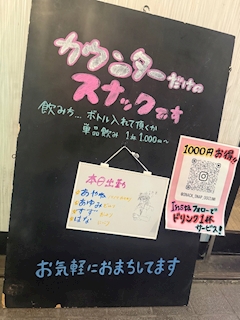 カウンターだけの
スナックです
飲みち... ボトル入れて頂くか
単品飲み 1杯 1,000円〜
本日出勤
あやか
あゆみ
すず
はな
1000円お得!!
Instaフォローで
ドリンク1杯
サービス!
お気軽におまちしてます